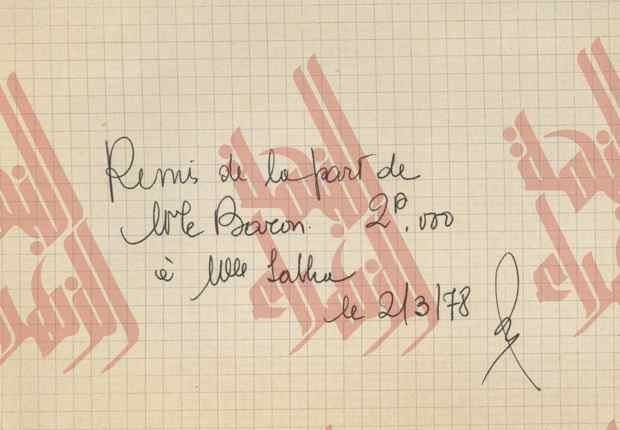 Remis de la part de
Mlle Baron. 2D.000
à Mlle Salha
le 2/3/78